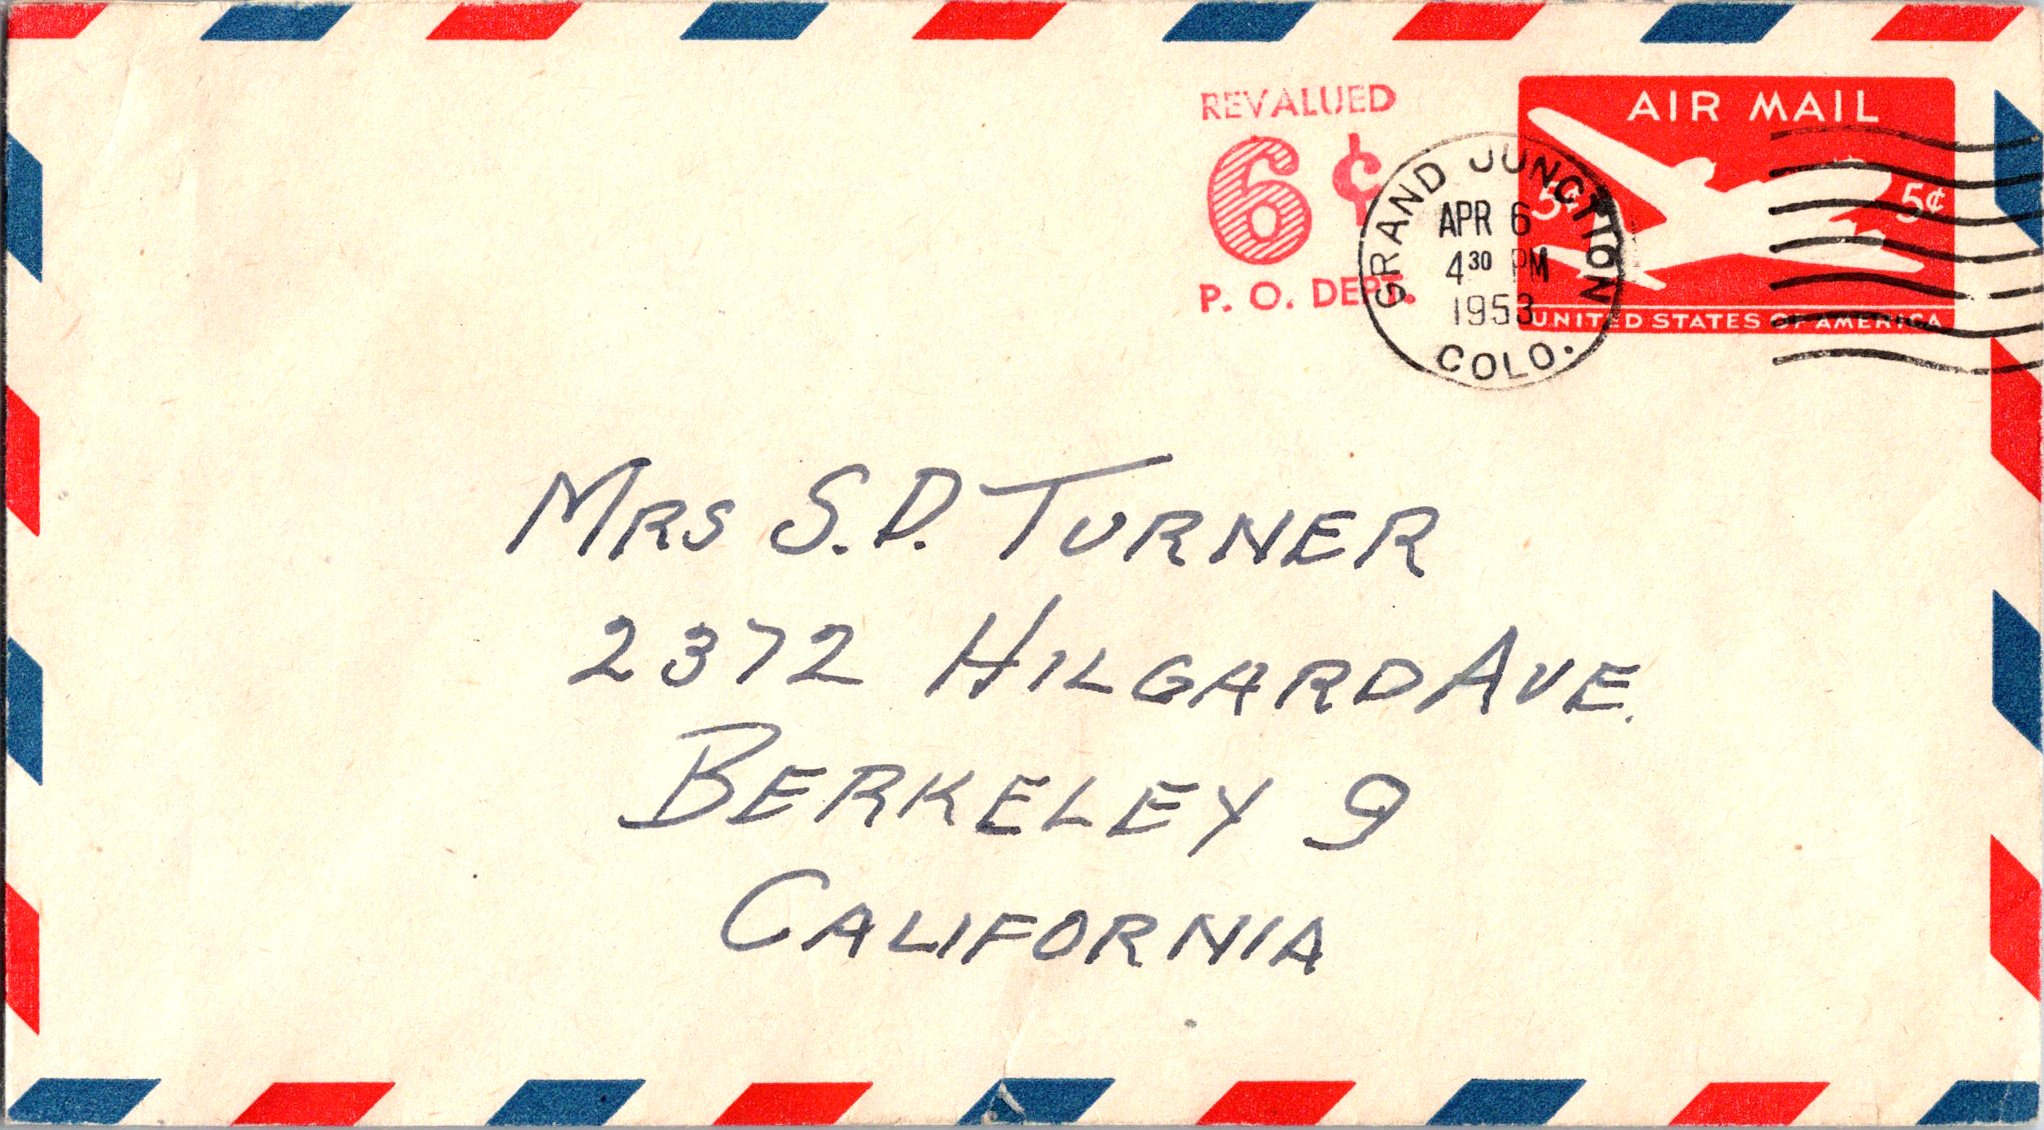 REVALUED
6¢
P. O. DEPT.
GRAND JUNCTION
APR 6
4 30 PM
1953
COLO.
AIR MAIL
5¢ 5¢
UNITED STATES OF AMERICA
MRS S.D. TURNER
2372 HILGARD AVE.
BERKELEY 9
CALIFORNIA